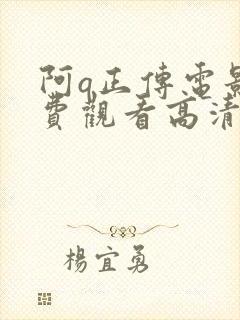 阿q正傳電影
費觀看高清
楊宜勇